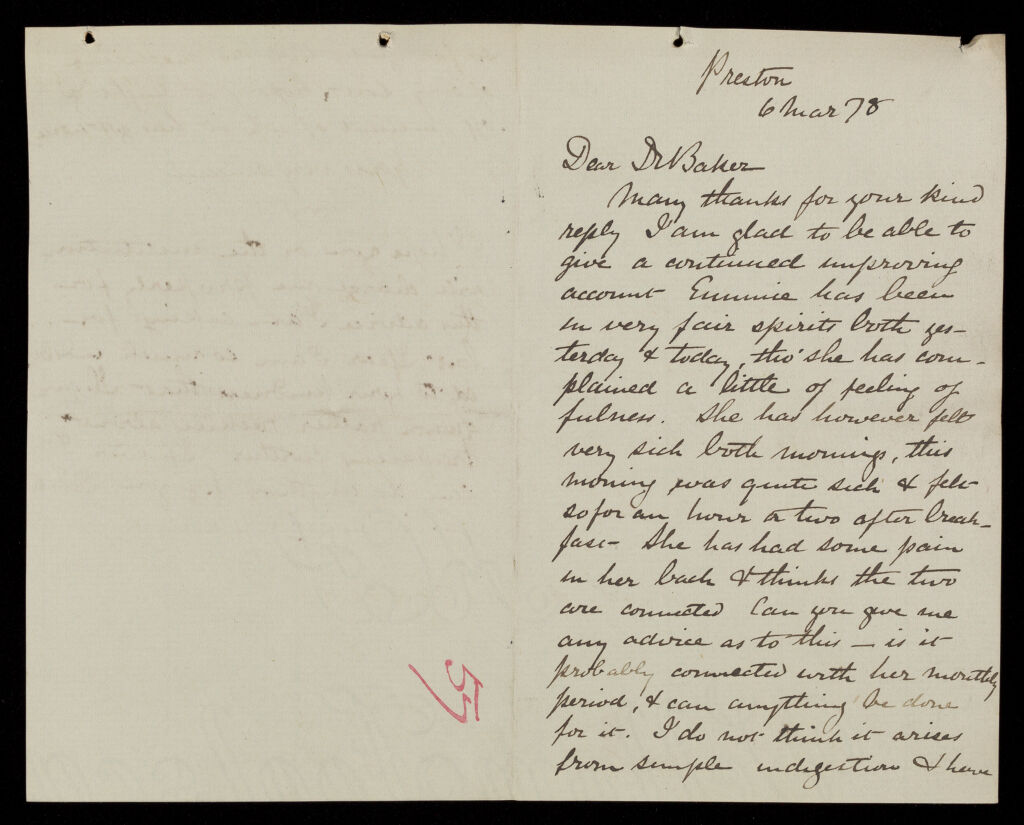 Preston
6 Mar 78
Dear Dr Baker
Many thanks for your kind
reply I am glad to be able to
give a continued improving
account Emmie has been
in very fair spirits both yes-
terday & today, tho' she has com-
plained a little of feeling of
fulness. She has however felt
very sick both mornings, this
morning was quite sick & felt
so for an hour or two after break-
fast- She has had some pain
in her back & thinks the two
are connected Can you give me
any advice as to this - is it
probably connected with her monthly
period, & can anything be done
for it. I do not think it arises
from simple indigestion & have
57